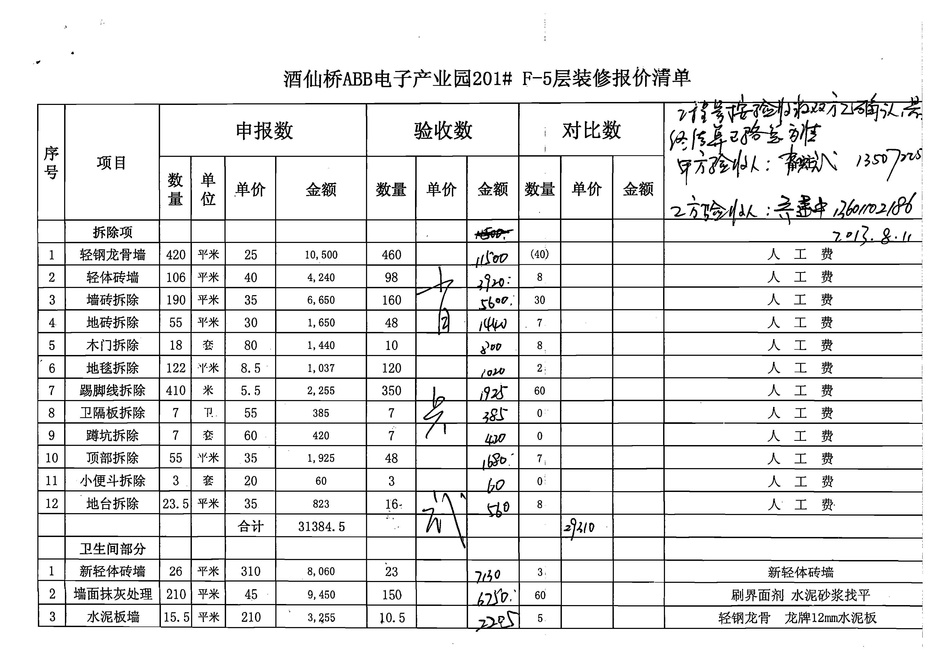 酒仙桥ABB电子产业园201# F-5层装修报价清单
序号 项目 申报数 验收数 对比数
数量 单位 单价 金额 数量 单价 金额 数量 单价 金额
甲方验收人： 13507225
乙方验收人： 13601102186
2013.8.11
拆除项
1 轻钢龙骨墙 420 平米 25 10,500 460 11500 (40) 人 工 费
2 轻体砖墙 106 平米 40 4,240 98 3920 8 人 工 费
3 墙砖拆除 190 平米 35 6,650 160 5600 30 人 工 费
4 地砖拆除 55 平米 30 1,650 48 1440 7 人 工 费
5 木门拆除 18 套 80 1,440 10 800 8 人 工 费
6 地毯拆除 122 平米 8.5 1,037 120 1020 2 人 工 费
7 踢脚线拆除 410 米 5.5 2,255 350 1925 60 人 工 费
8 卫隔板拆除 7 卫 55 385 7 385 0 人 工 费
9 蹲坑拆除 7 套 60 420 7 420 0 人 工 费
10 顶部拆除 55 平米 35 1,925 48 1680 7 人 工 费
11 小便斗拆除 3 套 20 60 3 60 0 人 工 费
12 地台拆除 23.5 平米 35 823 16 560 8 人 工 费
合计 31384.5 29310
卫生间部分
1 新轻体砖墙 26 平米 310 8,060 23 7130 3 新轻体砖墙
2 墙面抹灰处理 210 平米 45 9,450 150 6750 60 刷界面剂 水泥砂浆找平
3 水泥板墙 15.5 平米 210 3,255 10.5 2205 5 轻钢龙骨 龙牌12mm水泥板